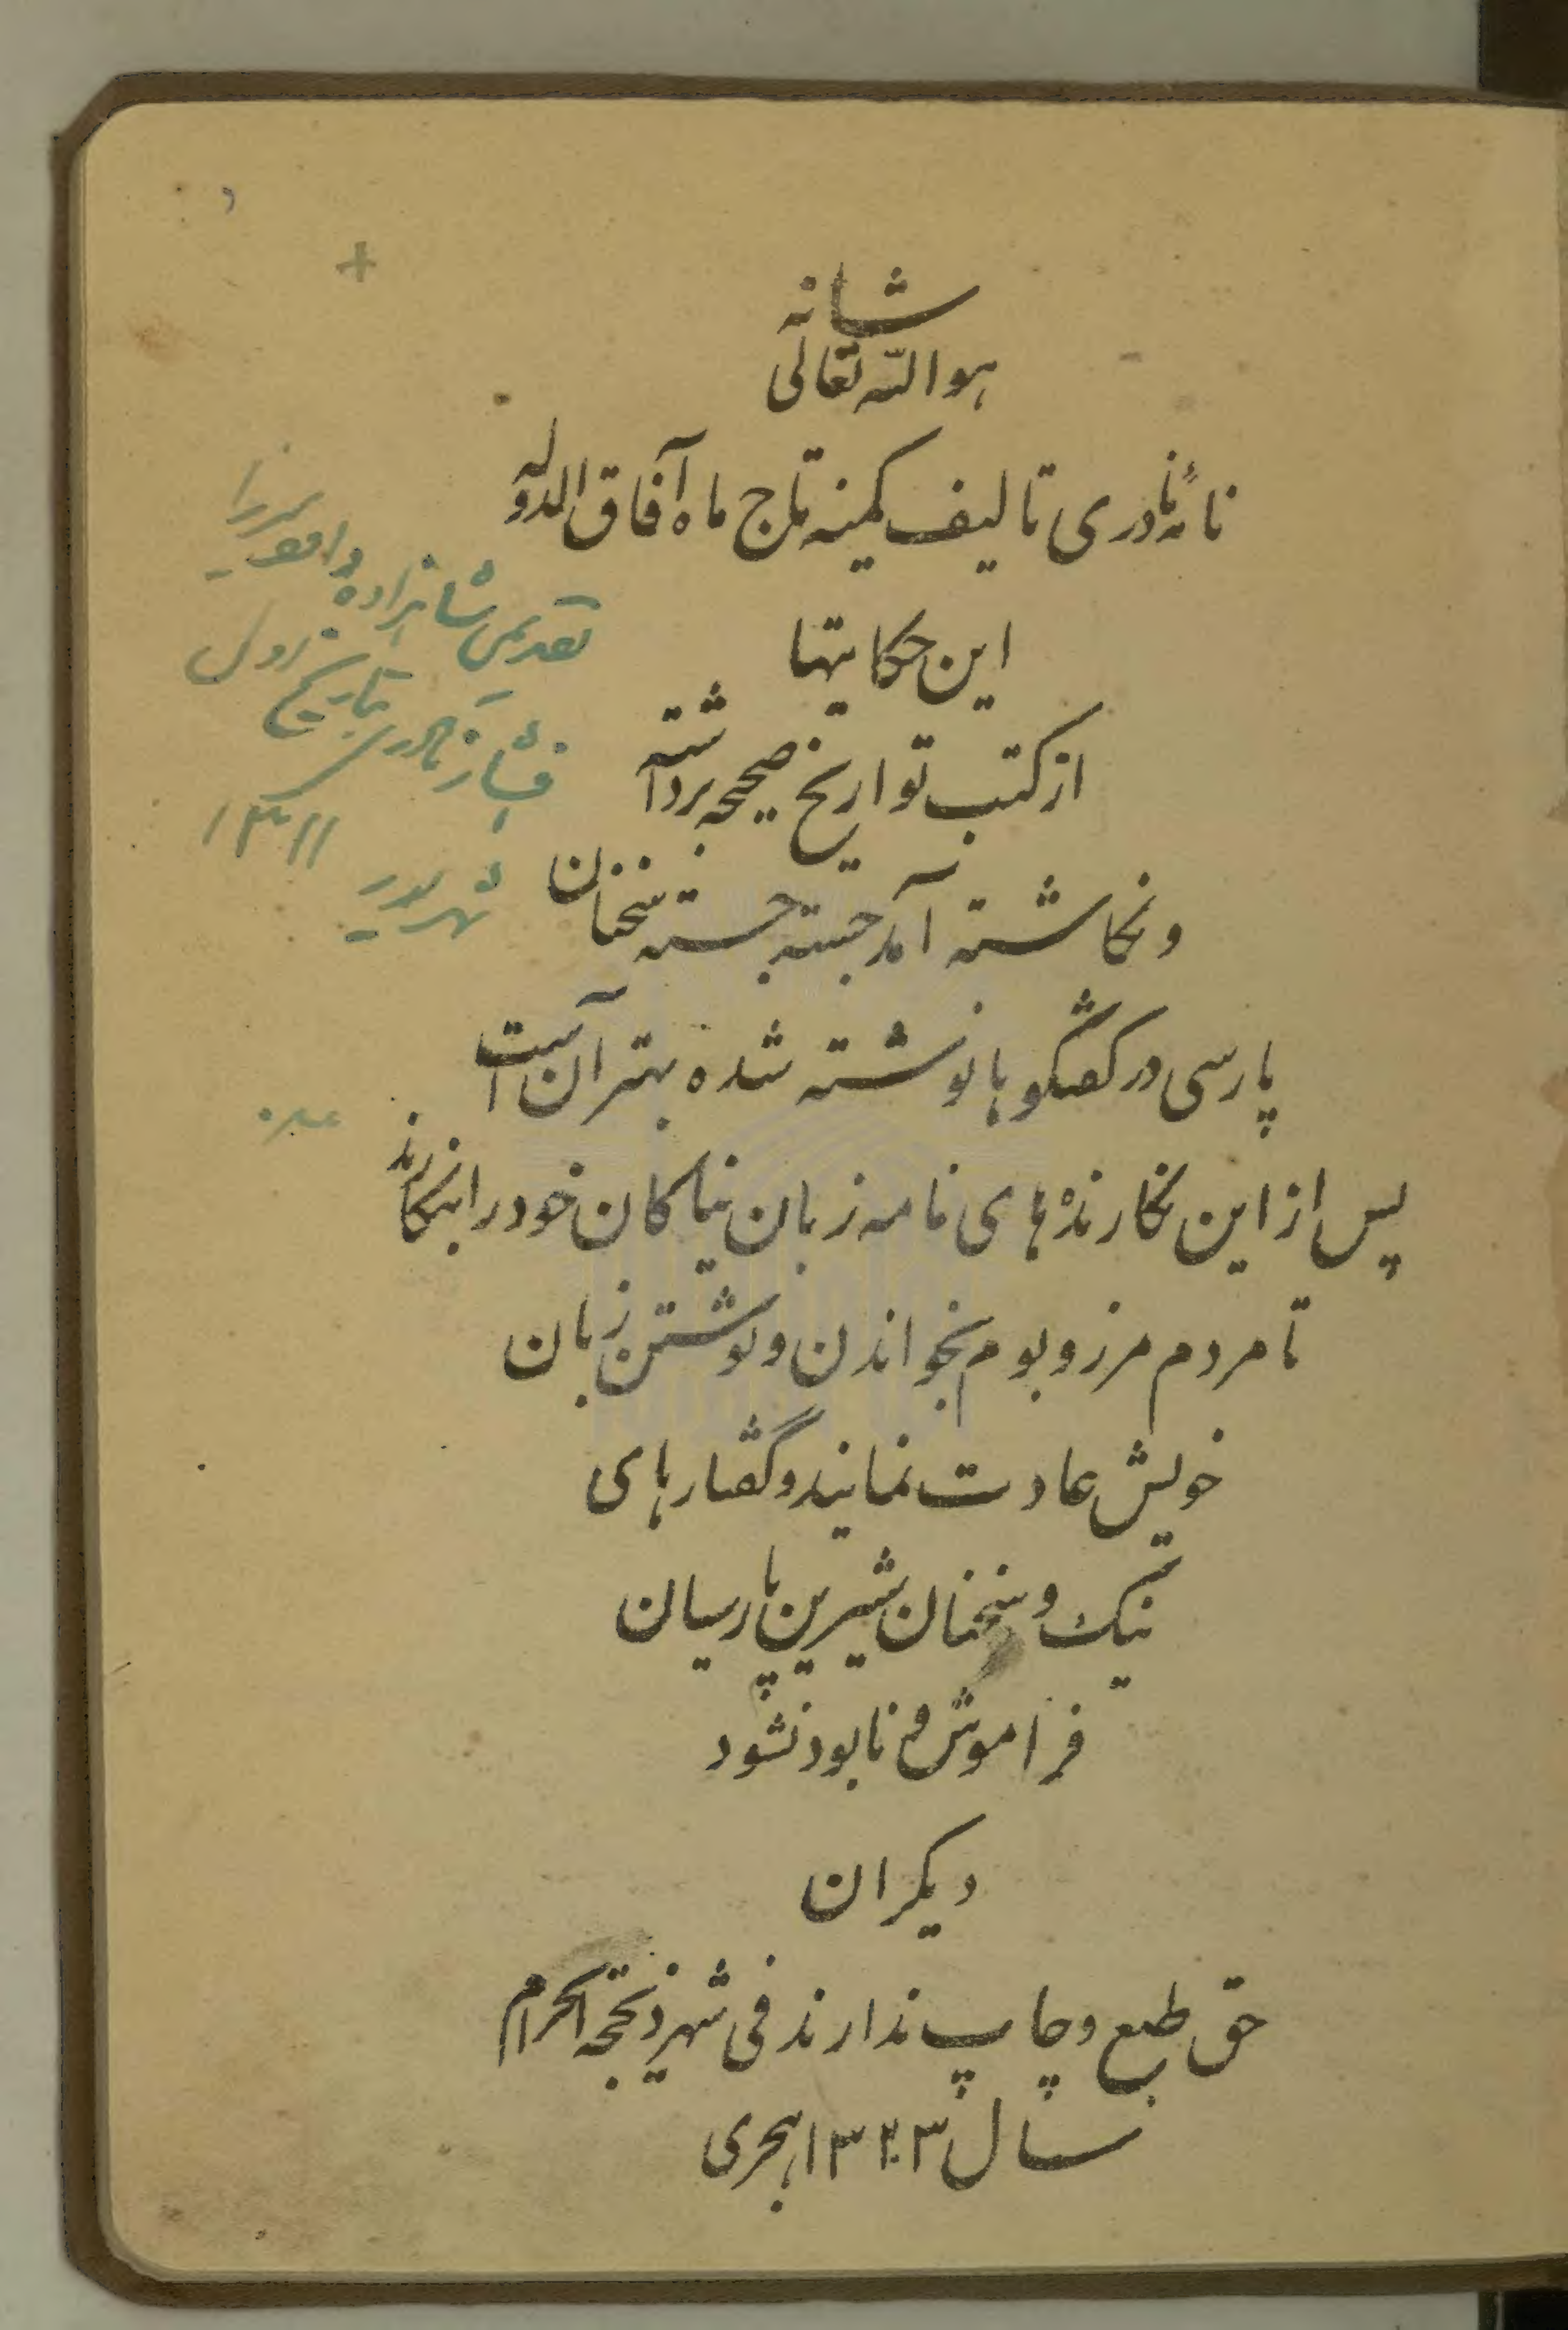 هوالله تعالی شانه
نامهٔ نادری تالیف کمینه تاج ماه آفاق الدوله
این حکایتها
از کتب تواریخ صحیحه برداشته
و نکاشته آمد جسته جسته سخنان
پارسی در کفتکوها نوشته شده بهتر آن است
پس از این نکارنده‌های نامه زبان نیاکان خود را بنکارند
تا مردم مرز و بوم بخواندن و نوشتن زبان
خویش عادت نمایند و گفتارهای
نیک و سخنان شیرین پارسیان
فراموش و نابود نشود
دیکران
حق طبع و چاپ ندارند فی شهر ذیحجه الحرام
سال ۱۳۲۳ هجری
تقدیمی شاهزاده
افشار نادری بتاریخ
شهریور ۱۳۱۱